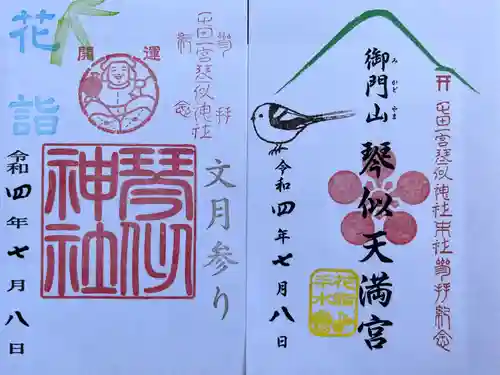 花詣
開運
屯田一宮琴似神社
参拝
記念
文月参り
琴似
神社
令和四年七月八日
屯田一宮琴似神社末社参拝記念
御門山 琴似天満宮
みかどやま
令和四年七月八日